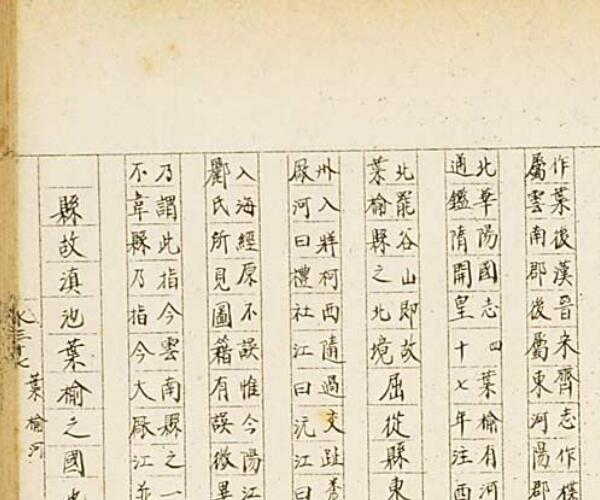 作葉後漢晉宋齊志作楪
屬雲南郡後屬東河陽郡
北華陽國志四葉榆有河
通鑑隋開皇十七年注西
北罷谷山即故
葉榆縣之北境
屈從縣東
州入牂柯西隨過交趾
厥河曰禮社江曰沅江曰
入海經原不誤惟今陽江
酈氏所見圖籍有誤徵異
乃謂此指今雲南縣之一
不韋縣乃指今大厥江並
縣故滇池葉榆之國
水三十七
葉榆河